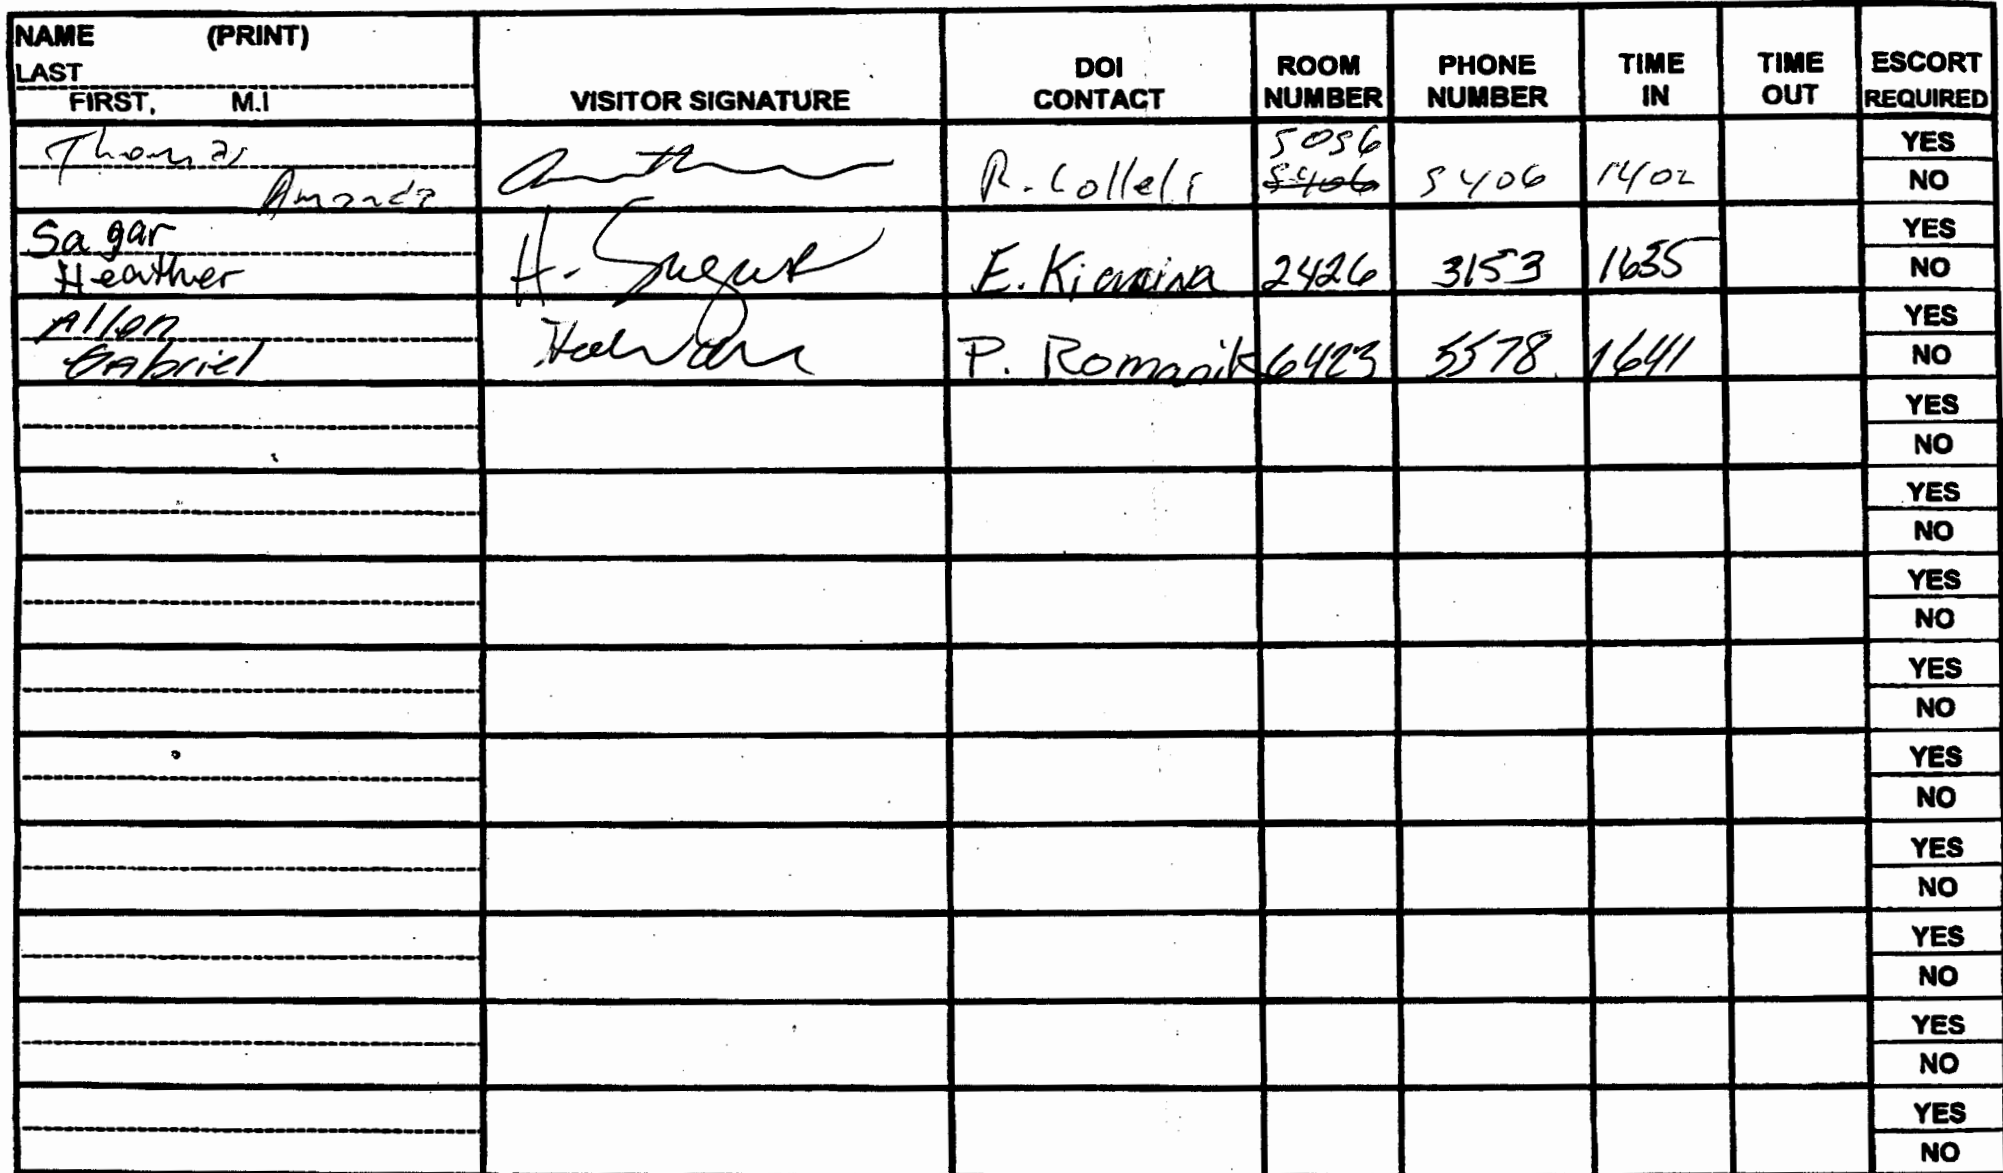 NAME (PRINT)
LAST
FIRST, M.I
VISITOR SIGNATURE
DOI CONTACT
ROOM NUMBER
PHONE NUMBER
TIME IN
TIME OUT
ESCORT REQUIRED
Thomas
Amanda
R. Colleli
5056
5406
5406
1402
YES
NO
Sagar
Heather
H. Sagar
E. Kianina
2426
3153
1635
YES
NO
Allen
Gabriel
P. Romanik
6423
5578
1641
YES
NO
YES
NO
YES
NO
YES
NO
YES
NO
YES
NO
YES
NO
YES
NO
YES
NO
YES
NO